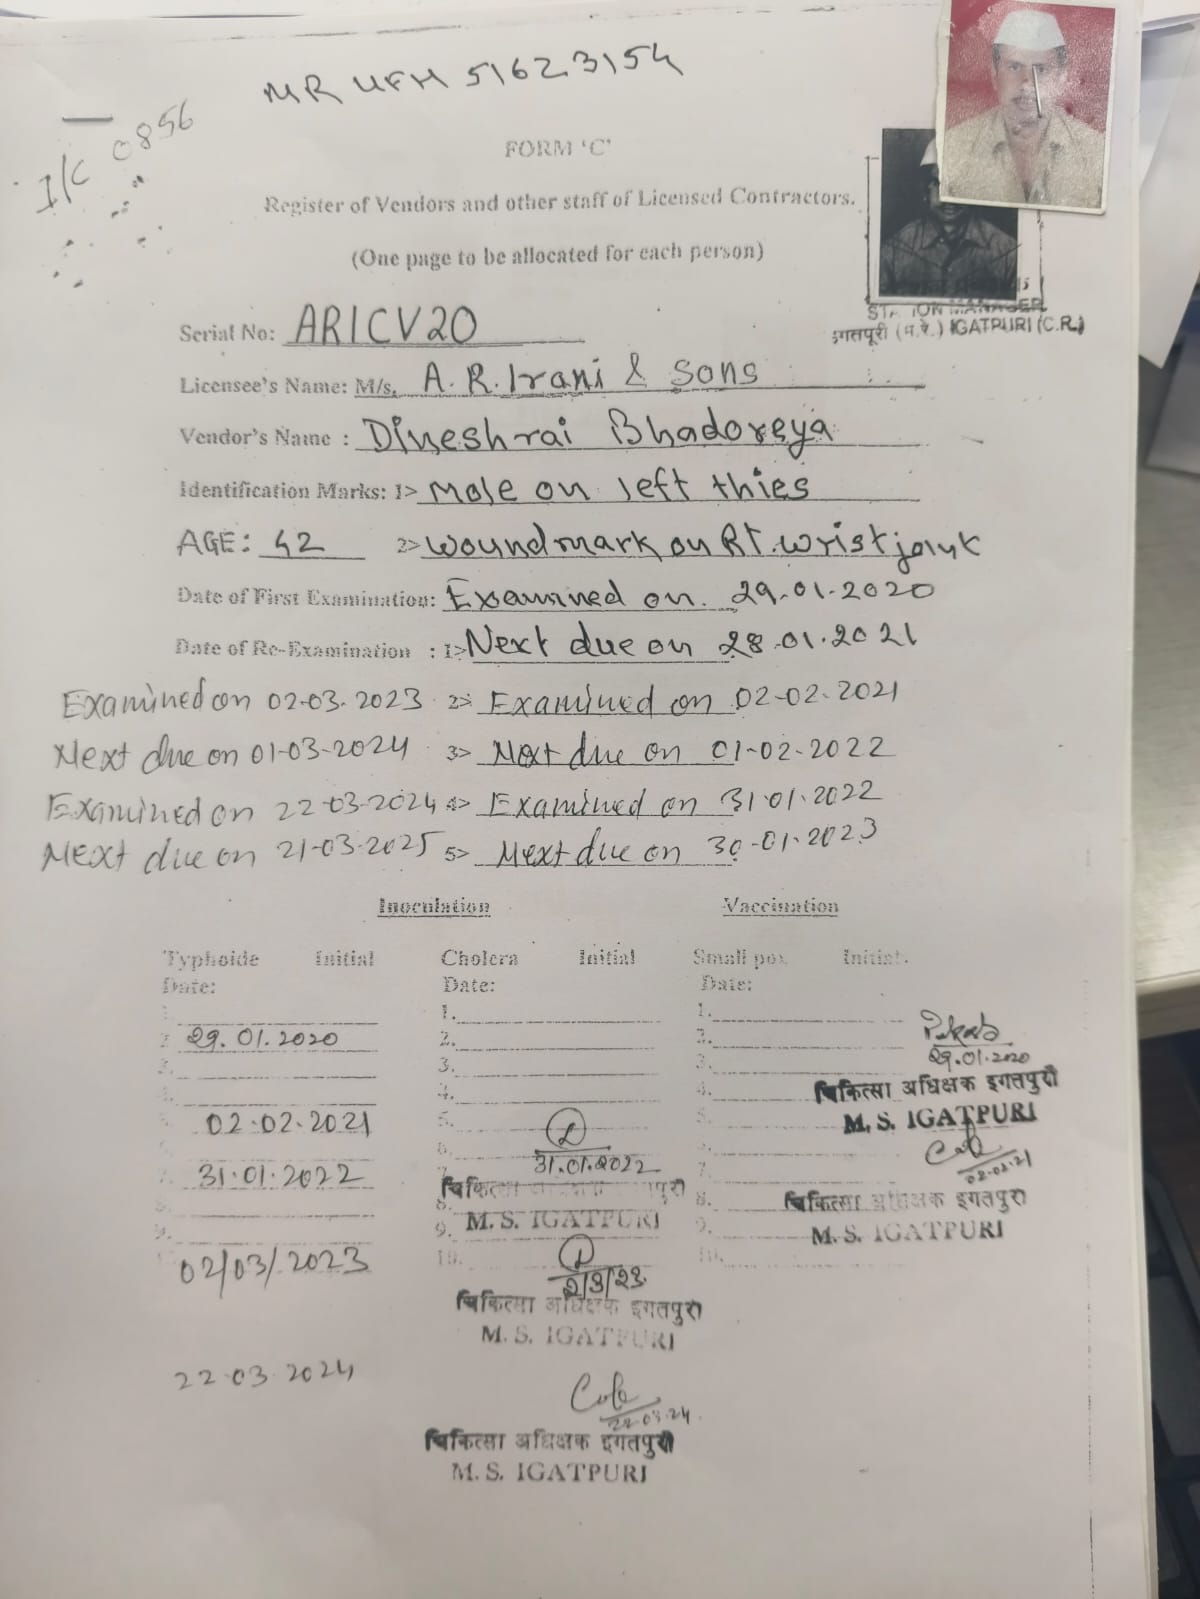 MR UFH 51623154
I/C 0856
FORM 'C'
Register of Vendors and other staff of Licensed Contractors.
(One page to be allocated for each person)
STATION MANAGER
इगतपूरी (म.रे.) IGATPURI (C.R.)
Serial No: ARICV20
Licensee's Name: M/s. A. R. Irani & Sons
Vendor's Name : Dineshrai Bhadoreya
Identification Marks: 1> Mole on left thies
AGE: 42 2> Wound mark on RT. wrist
Date of First Examination: Examined on. 29.01.2020
Date of Re-Examination : 1> Next due on 28.01.2021
Examined on 02-03.2023 2> Examined on 02-02-2021
Next due on 01-03-2024 3> Next due on 01-02-2022
Examined on 22-03-2024 4> Examined on 31.01.2022
Next due on 21-03-2025 5> Next due on 30-01-2023
Inoculation Vaccination
Typhoide Initial Cholera Initial Small pox Initial.
Date: Date: Date:
1. 1. 1.
2. 29.01.2020 2. 2.
3. 3. 3. 29.01.2020
4. 4. 4. चिकित्सा अधिक्षक इगतपुरी
5. 02.02.2021 5. 5. M. S. IGATPURI
6. 02.02.21
7. 31.01.2022 7. 31.01.2022 7.
8. चिकित्सा अधिक्षक इगतपुरी 8. चिकित्सा अधिक्षक इगतपुरी
9. 9. M. S. IGATPURI 9. M. S. IGATPURI
02/03/2023 10. 2/3/23 10.
चिकित्सा अधिक्षक इगतपुरी
M. S. IGATPURI
22.03.2024
22.03.24
चिकित्सा अधिक्षक इगतपुरी
M. S. IGATPURI